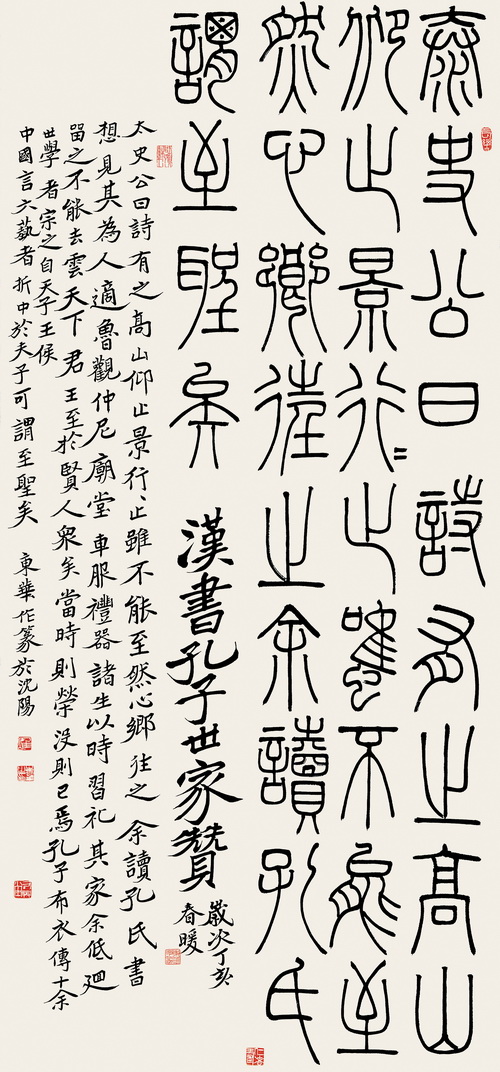 泰史公曰詩有之高山
仰止景行=止雖不能至
然心鄉往之余讀孔氏
謂至聖矣
漢書孔子世家贊
歲次丁亥
春暖
太史公曰詩有之高山仰止景行、止雖不能至然心鄉往之余讀孔氏書
想見其為人適魯觀仲尼廟堂車服禮器諸生以時習礼其家余低廻
留之不能去雲天下君王至於賢人衆矣當時則榮沒則已焉孔子布衣傳十余
世學者宗之自天子王侯
中國言六藝者折中於夫子可謂至聖矣 東華作篆於沈陽